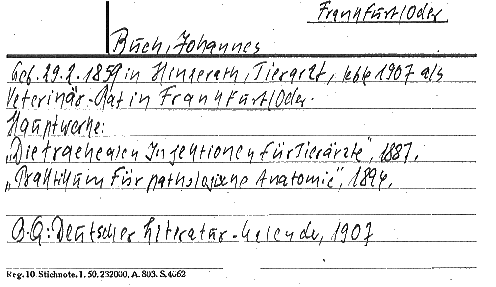 Frankfurt/Oder
Buch, Johannes
Geb. 29.2.1859 in Hinzerath, Tierarzt, lebte 1907 als
Veterinär-Rat in Frankfurt/Oder.
Hauptwerke:
„Die trachealen Injektionen für Tierärzte", 1887.
„Praktikum für pathologische Anatomie", 1894.
B.Q: Deutscher Literatur-Kalender, 1907
Reg. 10 Stichnote. 1. 50. 232000, A. 803. S. 4662